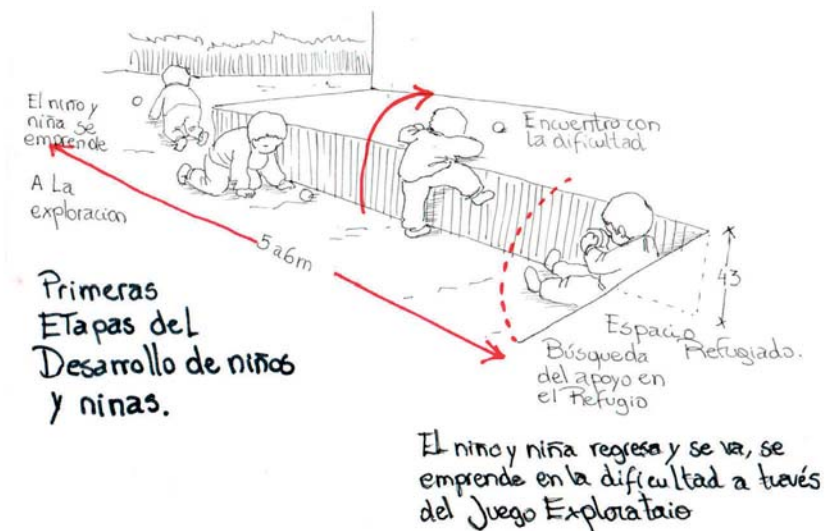 El niño y
niña se
emprende
A La
exploracion
5 a 6m
Encuentro con
la dificultad
43
Espacio Refugiado.
Búsqueda
del apoyo en
el Refugio
Primeras
Etapas del
Desarrollo de niños
y ninas.
El niño y niña regresa y se va, se
emprende en la dificultad a través
del Juego Exploratoio